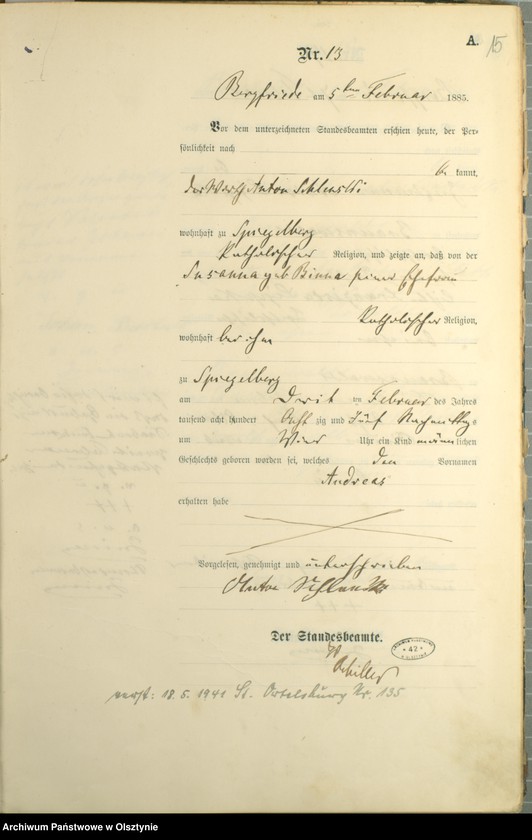 A. 15
Nr. 13
Bergfriede am 5ten Februar 1885.
Vor dem unterzeichneten Standesbeamten erschien heute, der Per-
sönlichkeit nach
be kannt,
der Wirth Anton
wohnhaft zu Spiegelberg
katholischer Religion, und zeigte an, daß von der
Susanna geb Binna seiner Ehefrau
katholischer Religion,
wohnhaft bei ihm
zu Spiegelberg
am Drit ten Februar des Jahres
tausend acht hundert Acht zig und Fünf Nachmittags
um Vier Uhr ein Kind männlichen
Geschlechts geboren worden sei, welches den Vornamen
Andreas
erhalten habe
Vorgelesen, genehmigt und unterschrieben
Anton
Der Standesbeamte.
42
Schiller
verst: 18.5.1941 St. Ortelsburg Nr. 135
Archiwum Państwowe w Olsztynie